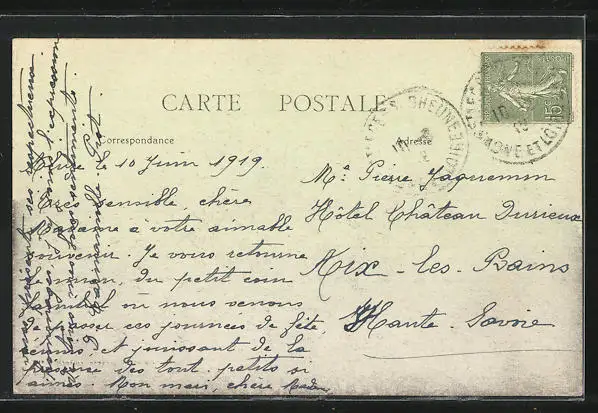 CARTE POSTALE
Correspondance
Adresse
le 10 Juin 1919.
Très sensible, chère
Madame à votre aimable
souvenir. Je vous retourne
le mien, du petit coin
familial où nous venons
de passer ces journées de fête,
réunis, et jouissant de la
présence des tout petits si
aimés. Mon mari, chère Madame,
vous présente ses respectueux
hommages, et l'expression
Me Pierre Jaquemin
Hôtel Château Durieux
Aix-les-Bains
Haute-Savoie
15c